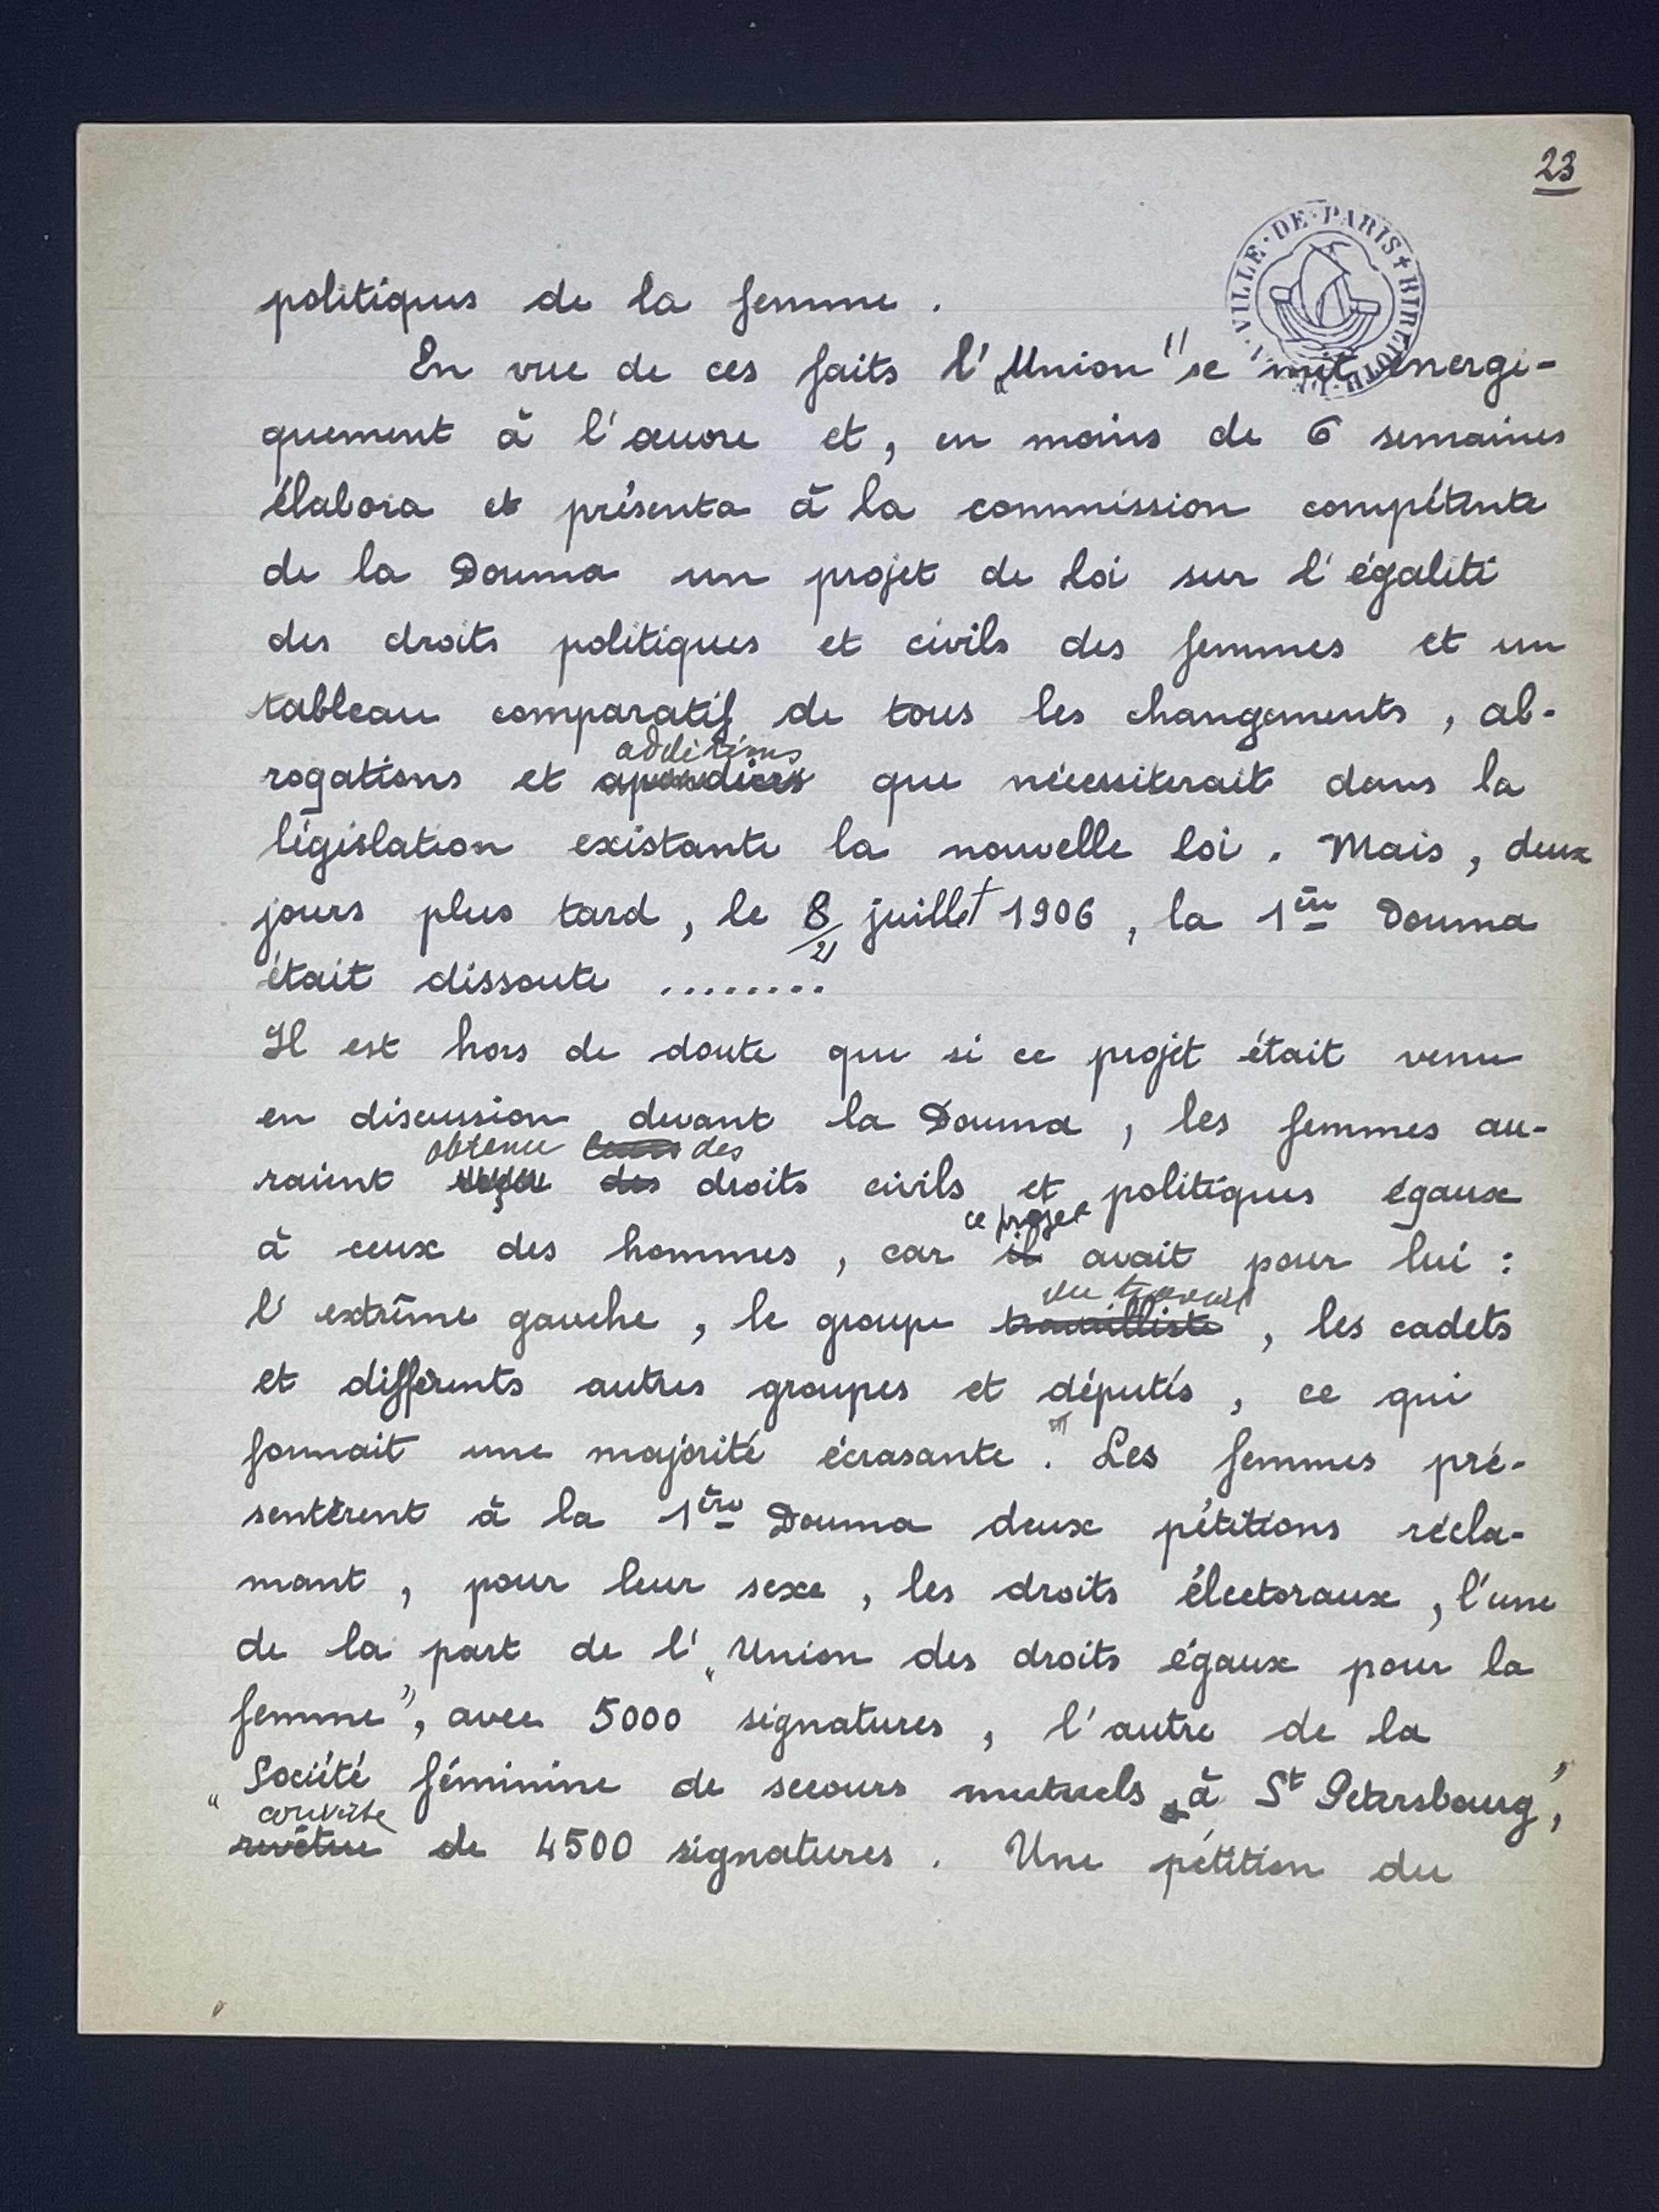 23
VILLE·DE·PARIS
politiques de la femme.
En vue de ces faits l'„Union" se mit énergi-
quement à l'œuvre et, en moins de 6 semaines
élabora et présenta à la commission compétente
de la Douma un projet de loi sur l'égalité
des droits politiques et civils des femmes et un
tableau comparatif de tous les changements, ab-
additions
rogations et que nécessiterait dans la
législation existante la nouvelle loi. Mais, deux
jours plus tard, le 8/21 juillet 1906, la 1ère Douma
était dissoute ........
Il est hors de doute que si ce projet était venu
en discussion devant la Douma, les femmes au-
obtenu des
raient reçu des droits civils et politiques égaux
ce projet
à ceux des hommes, car il avait pour lui :
du travail
l'extrême gauche, le groupe travailliste, les cadets
et différents autres groupes et députés, ce qui
formait une majorité écrasante. Les femmes pré-
sentèrent à la 1ère Douma deux pétitions récla-
mant, pour leur sexe, les droits électoraux, l'une
de la part de l'„Union des droits égaux pour la
femme", avec 5000 signatures, l'autre de la
„Société féminine de secours mutuels à St Pétersbourg",
couverte
revêtue de 4500 signatures. Une pétition du